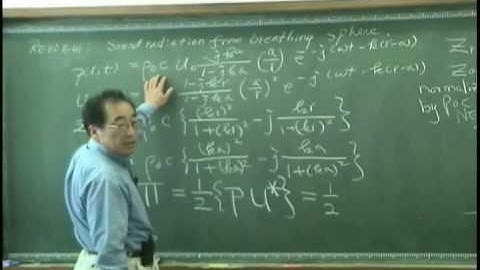 REVIEW: Sound radiation from breathing sphere.
p(r,t) = ρ₀c U₀ -jka/1-jka (a/r) e^-j(ωt-k(r-a))
1-jkr/1-jka (a/r)² e^-j(ωt-k(r-a))
ρ₀c {(kr)²/1+(kr)² - j kr/1+(kr)²}
ρ₀c {(ka)²/1+(ka)² - j ka/1+(ka)²}
Π = 1/2 {P U*} = 1/2
Zr
Z0
normaliz
by ρ₀c